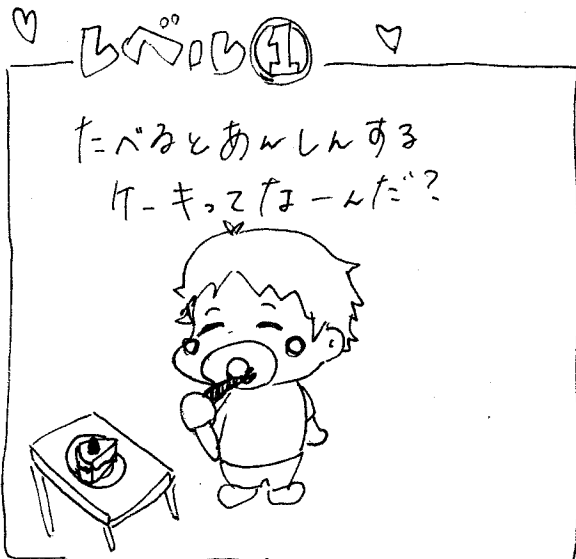 レベル①
たべるとあんしんする
ケーキってなーんだ？